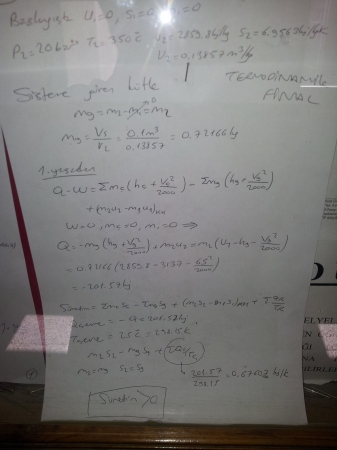 Başlangıçta U₁=0, S₁=0, m₁=0
P₂=20 bar T₂=350°C U₂=2859.8 kj/kg S₂=6.956 kj/kgK
V₂=0.13857 m³/kg
TERMODİNAMİK
FİNAL
Sisteme giren kütle
mg=m₂-m₁=m₂
mg=V₂/v₂=0.1m³/0.13857=0.72166 kg
1. yasadan
Q-W=Σmç(hç+Vç²/2000)-Σmg(hg+Vg²/2000)
+(m₂u₂-m₁u₁)KH
W=0, mç=0, m₁=0 ⇒
Q=-mg(hg+Vg²/2000)+m₂u₂=m₂(u₂-hg-Vg²/2000)
=0.72166(2859.8-3137-65²/2000)
=-201.57 kj
Süretim=Σmç Sç-Σmg Sg+(m₂S₂-m₁S₁)KH+
Qçevre=-Q=201.57 kj
Tçevre=25°C=298.15K
m₂S₂-mg Sg+
m₂=mg S₂=Sg
201.57/298.15=0.67607 kj/K
Süretim>0